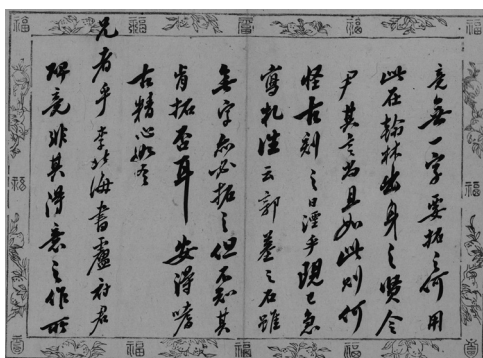 竟無一字要拓之何用
此在翰林出身之賢令
尹其言尚且如此則何
怪古刻之日湮乎現已急
寫札往云郭墓之石雖
無字亦必拓之但不知其
肯拓否耳安得嗜
古精心如吾
兄者乎李北海書盧府君
碑竟非其得意之作所